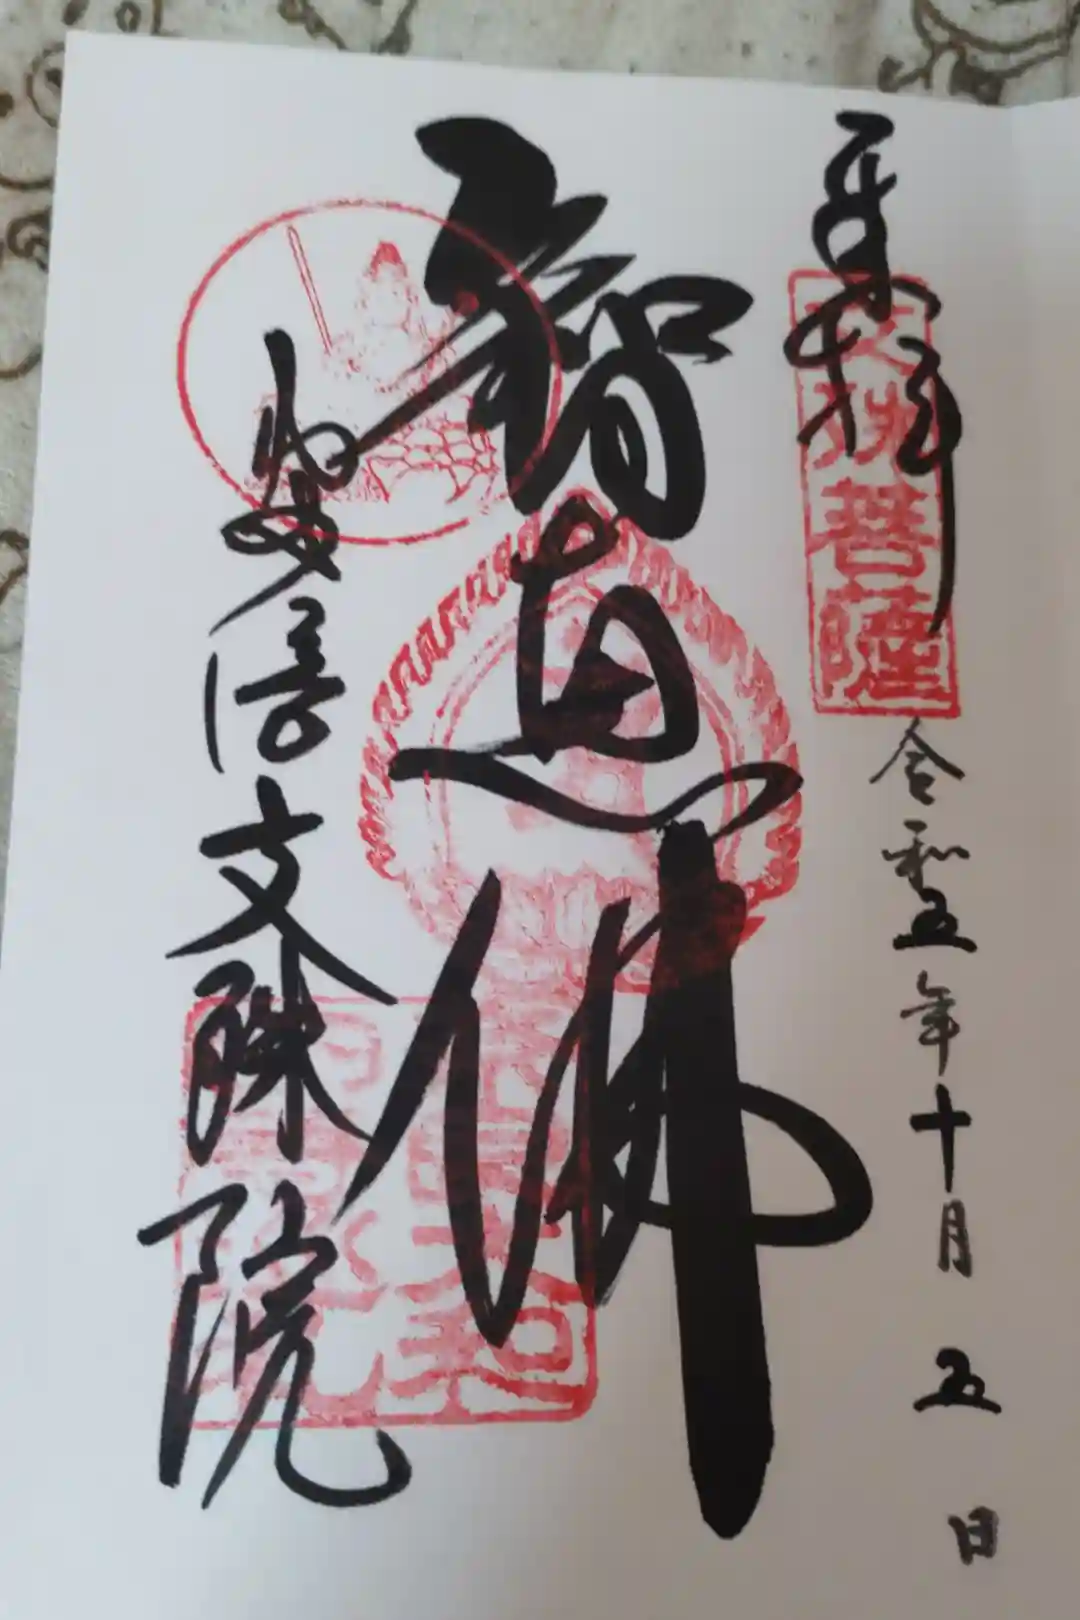 奉拝
文殊菩薩
令和五年十月五日
智恵佛
安倍文殊院